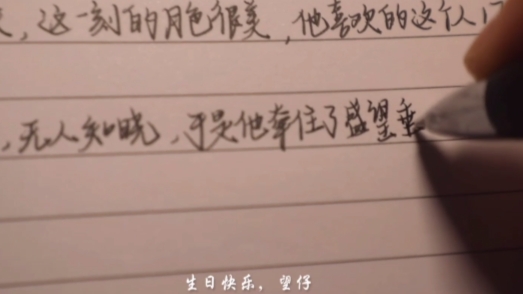 ，这一刻的月色很美，他喜欢的这个人
，无人知晓，于是他牵住了盛望垂
生日快乐，望仔